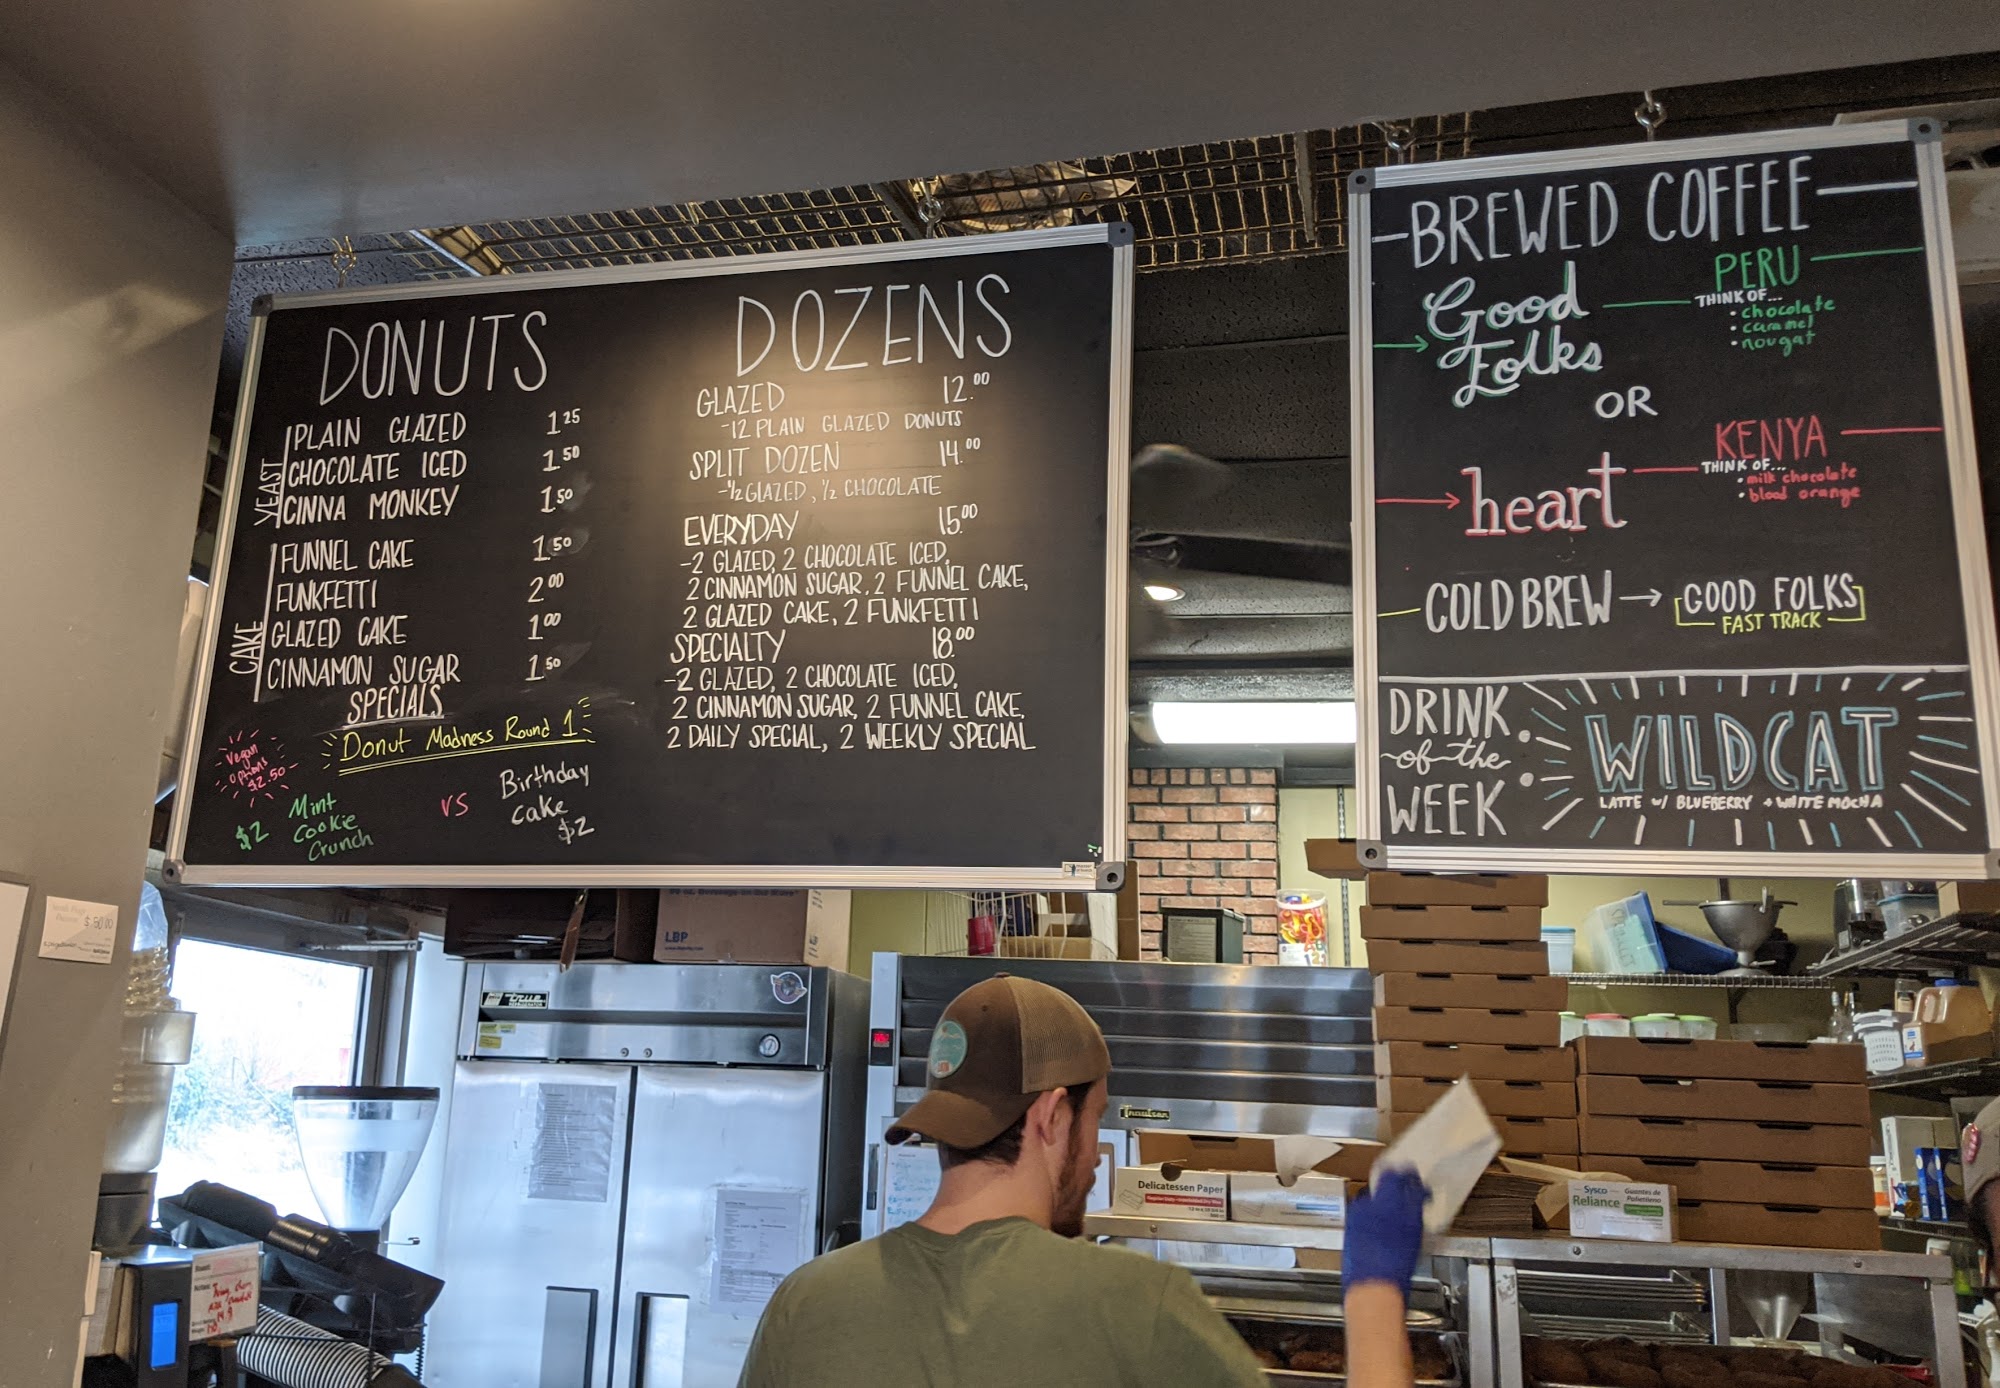 DONUTS
YEAST
PLAIN GLAZED 1.25
CHOCOLATE ICED 1.50
CINNA MONKEY 1.50
CAKE
FUNNEL CAKE 1.50
FUNKFETTI 2.00
GLAZED CAKE 1.00
CINNAMON SUGAR 1.50
SPECIALS
Donut Madness Round 1
Vegan
options
$2.50
$2 Mint
Cookie
Crunch
vs
Birthday
Cake
$2
DOZENS
GLAZED 12.00
-12 PLAIN GLAZED DONUTS
SPLIT DOZEN 14.00
-1/2 GLAZED, 1/2 CHOCOLATE
EVERYDAY 15.00
-2 GLAZED, 2 CHOCOLATE ICED,
2 CINNAMON SUGAR, 2 FUNNEL CAKE,
2 GLAZED CAKE, 2 FUNKFETTI
SPECIALTY 18.00
-2 GLAZED, 2 CHOCOLATE ICED,
2 CINNAMON SUGAR, 2 FUNNEL CAKE,
2 DAILY SPECIAL, 2 WEEKLY SPECIAL
BREWED COFFEE
Good
Folks
PERU
THINK OF...
• chocolate
• caramel
• nougat
OR
heart
KENYA
THINK OF...
• milk chocolate
• blood orange
COLD BREW → GOOD FOLKS
FAST TRACK
DRINK
of the
WEEK
WILDCAT
LATTE W/ BLUEBERRY + WHITE MOCHA
LBP
true
$50.00
Traulsen
Delicatessen Paper
Sysco
Reliance
Guantes de
Polietileno